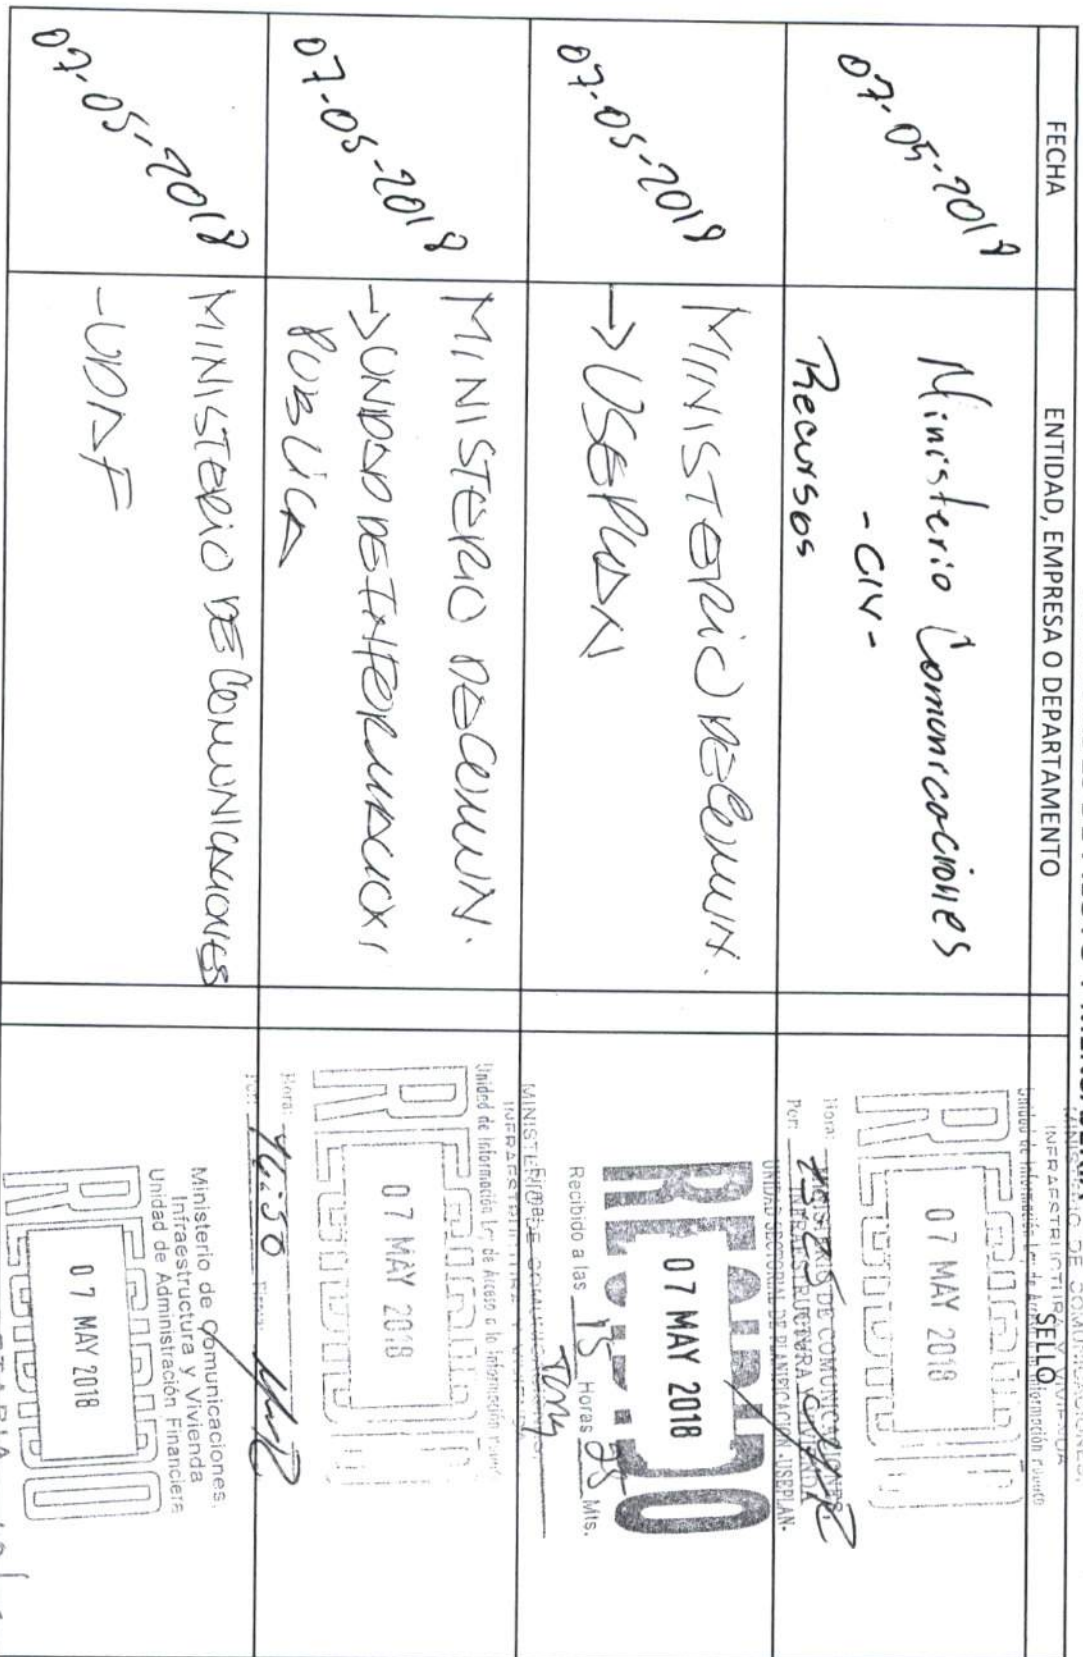 FECHA
ENTIDAD, EMPRESA O DEPARTAMENTO
SELLO
07-05-2018
Ministerio Comunicaciones
-CIV-
Recursos
MINISTERIO DE COMUNICACIONES,
INFRAESTRUCTURA Y VIVIENDA
Unidad de Información Ley de Acceso a la Información Público
RECIBIDO
07 MAY 2018
Hora:
Por:
07-05-2018
MINISTERIO DE COMUN.
→ USEPLAN
MINISTERIO DE COMUNICACIONES,
INFRAESTRUCTURA Y VIVIENDA
UNIDAD SECTORIAL DE PLANIFICACION -USEPLAN-
RECIBIDO
07 MAY 2018
Recibido a las 15 Horas 25 Mts.
Firma: Tony
07-05-2018
MINISTERIO DE COMUN.
→ UNIDAD DE INFORMACION
PUBLICA
MINISTERIO DE COMUNICACIONES,
INFRAESTRUCTURA
Unidad de Información Ley de Acceso a la Información
RECIBIDO
07 MAY 2018
Hora:
Por:
07-05-2018
MINISTERIO DE COMUNICACIONES
-UDAF
Ministerio de Comunicaciones,
Infraestructura y Vivienda
Unidad de Administración Financiera
RECIBIDO
07 MAY 2018